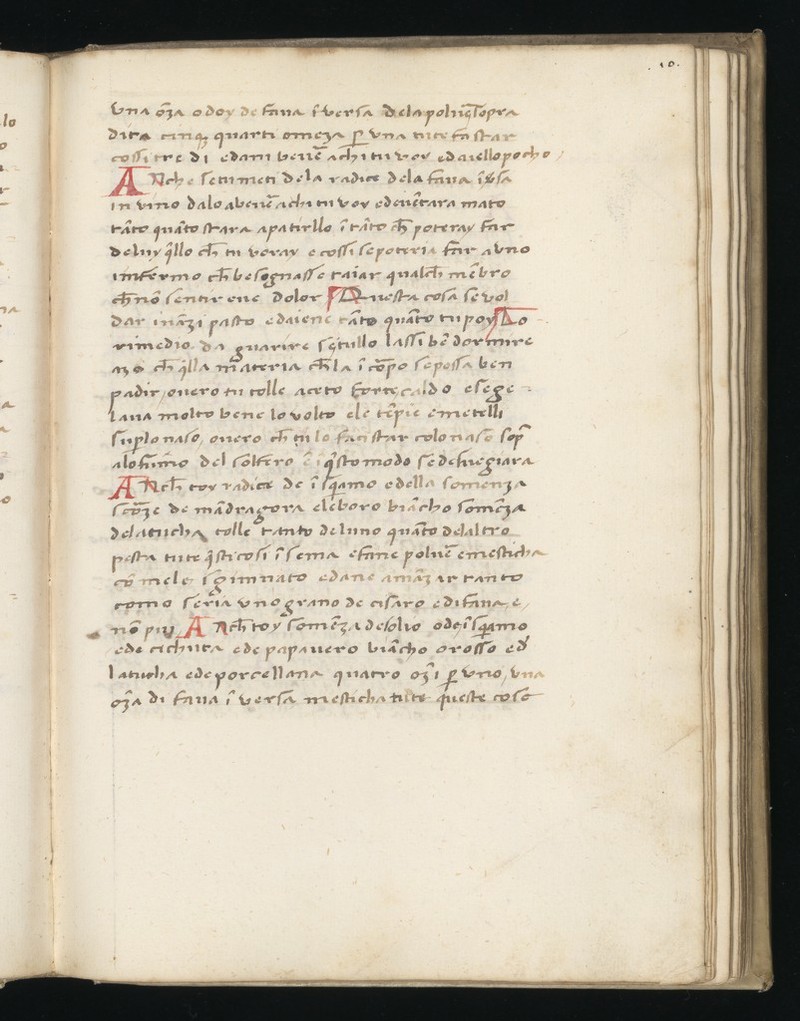 10.
lo
una õza o doy de faua ĩuersa dela poluesopra
dita cinq quarti o meza ꝑ una tute fa star
cossi tre di e dani beuer̃ a chi tu voy e daiello pocho
ANche se tu meti dela radice dela faua ĩuersa
in vino dalo a beuer̃ a chi tu voy e deuẽtara mato
tãto quãto stara apatirllo ĩ tãto ch̃ poteray far
deluy q̃llo ch̃ tu voray e cossi se poteria far a uno
infermo ch̃ besognasse taiar qualch̃ mẽbro
ch̃ nõ sentireue dolor Questa cosa se vol
dar inãzi pasto e daiene tãto quãto tu poy Lo
rimedio da guarire se tu llo lassi bẽ dormire
azo ch̃ q̃lla materia ch̃ la ĩ cõpo se possa ben
padir, ouero tu tolle aceto forte caldo e sege
laua molto bene lo volto e le tẽpie e metelli
sup̱ lo naso, ouero ch̃ tu lo faci star colo naso sop̃
alo fumo del solfero e ĩ q̃sto modo se desuegiara
ANch̃ toy radice de ĩsq̃amo e della somenza
scorze de mãdragora eleboro biãcho somẽza
de latucha tolle tanto deluno quãto delaltro
pesta tute q̃sti cosi ĩsema e fane poluer̃ e mesticha
cõ mele sgimnato e dane a mãzar tanto
como seria uno grano de cisaro e di faua, e
nõ piu ANch̃ toy somẽza de oluo o de ĩsq̃amo
e de cichuta e de papauero biãcho o rosso e d̃
latucha e de porcellana quatro ozĩ ꝑ uno, una
oza di faua ĩ versa mesticha tute queste cose